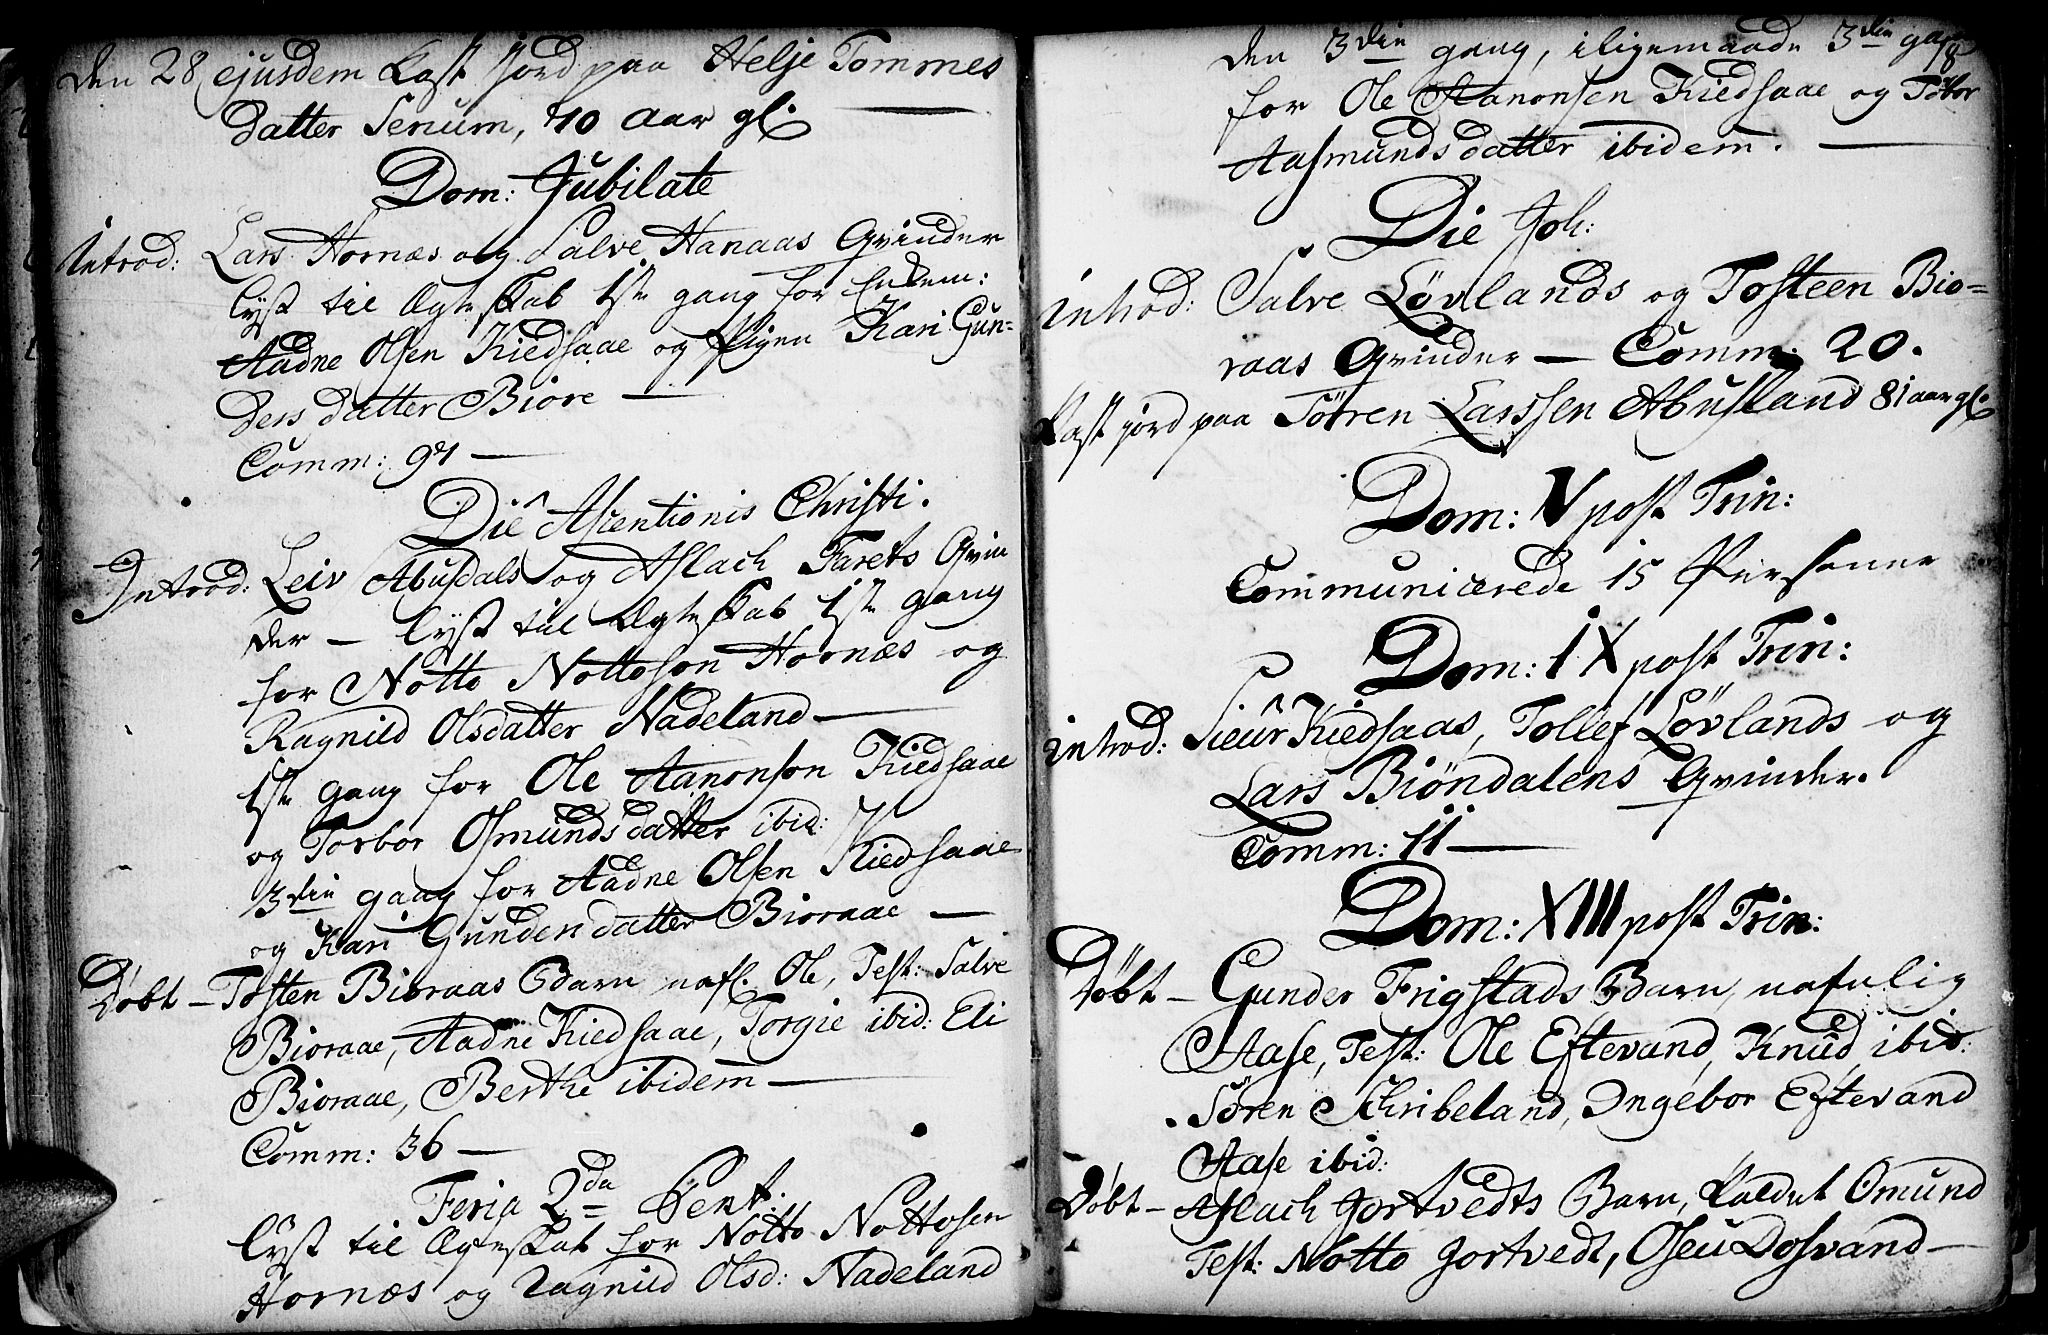 den 28 ejusdem Kast jord paa Helje Tommes
datter Senum, 70 aar gl.
Dom: Jubilate
Introd: Lars Hornæs og Salve Hanaas Qvinder
lyst til Ægteskab 1ste gang for
Aadne Olsen Kiedsaae og Pigen Kari Gun=
ders datter Biore —
Comm: 94 —
Die Ascentionis Christi.
Introd: Leiv Abusdals og Aslach Farets Qvin
der — lyst til Ægteskab 1ste gang
for Notto Nottoson Hornæs og
Ragnild Olsdatter Nadeland —
1ste gang for Ole Aanonson Kiedsaae
og Torbor Osmunds datter ibid:
3die gang for Aadne Olsen Kiedsaae
og Kari Gunders datter Bioraae —
Døbt — Tosten Bioraas Barn nafl. Ole, Test: Salve
Bioraae, Aadne Kiedsaae, Torgie ibid: Eli
Bioraae, Berthe ibidem —
Comm: 36 —
Feria 2da Pent:
lyst til Ægteskab for Notto Nottosen
Hornæs og Ragnild Olsd: Nadeland
den 3die gang, iligemaade 3die gang
for Ole Aanonsen Kiedsaae og Tobor
Aasmunds datter ibidem. —
Die Joh:
introd: Salve Løvlands og Tosteen Bio=
raas Qvinder — Comm: 20.
Kast jord paa Sören Larssen Abusland 81 aar gl.
Dom: V post Trin:
Communicerede 15 Personer
Dom: IX post Trin:
introd: Sieur Kiedsaas, Tollef Lövlands og
Lars Biöndalens Qvinder.
Comm: 11 —
Dom: XIII post Trin:
Döbt — Gunder Frigstads Barn, nafnlig
Aase, Test: Ole Eftevand, Knud ibid:
Sören Schribeland, Ingebor Eftevand
Aase ibid:
Döbt — Aslach Jortvedts Barn, Kaldet Omund
Test: Notto Jortvedt, Oseu Dosvand —